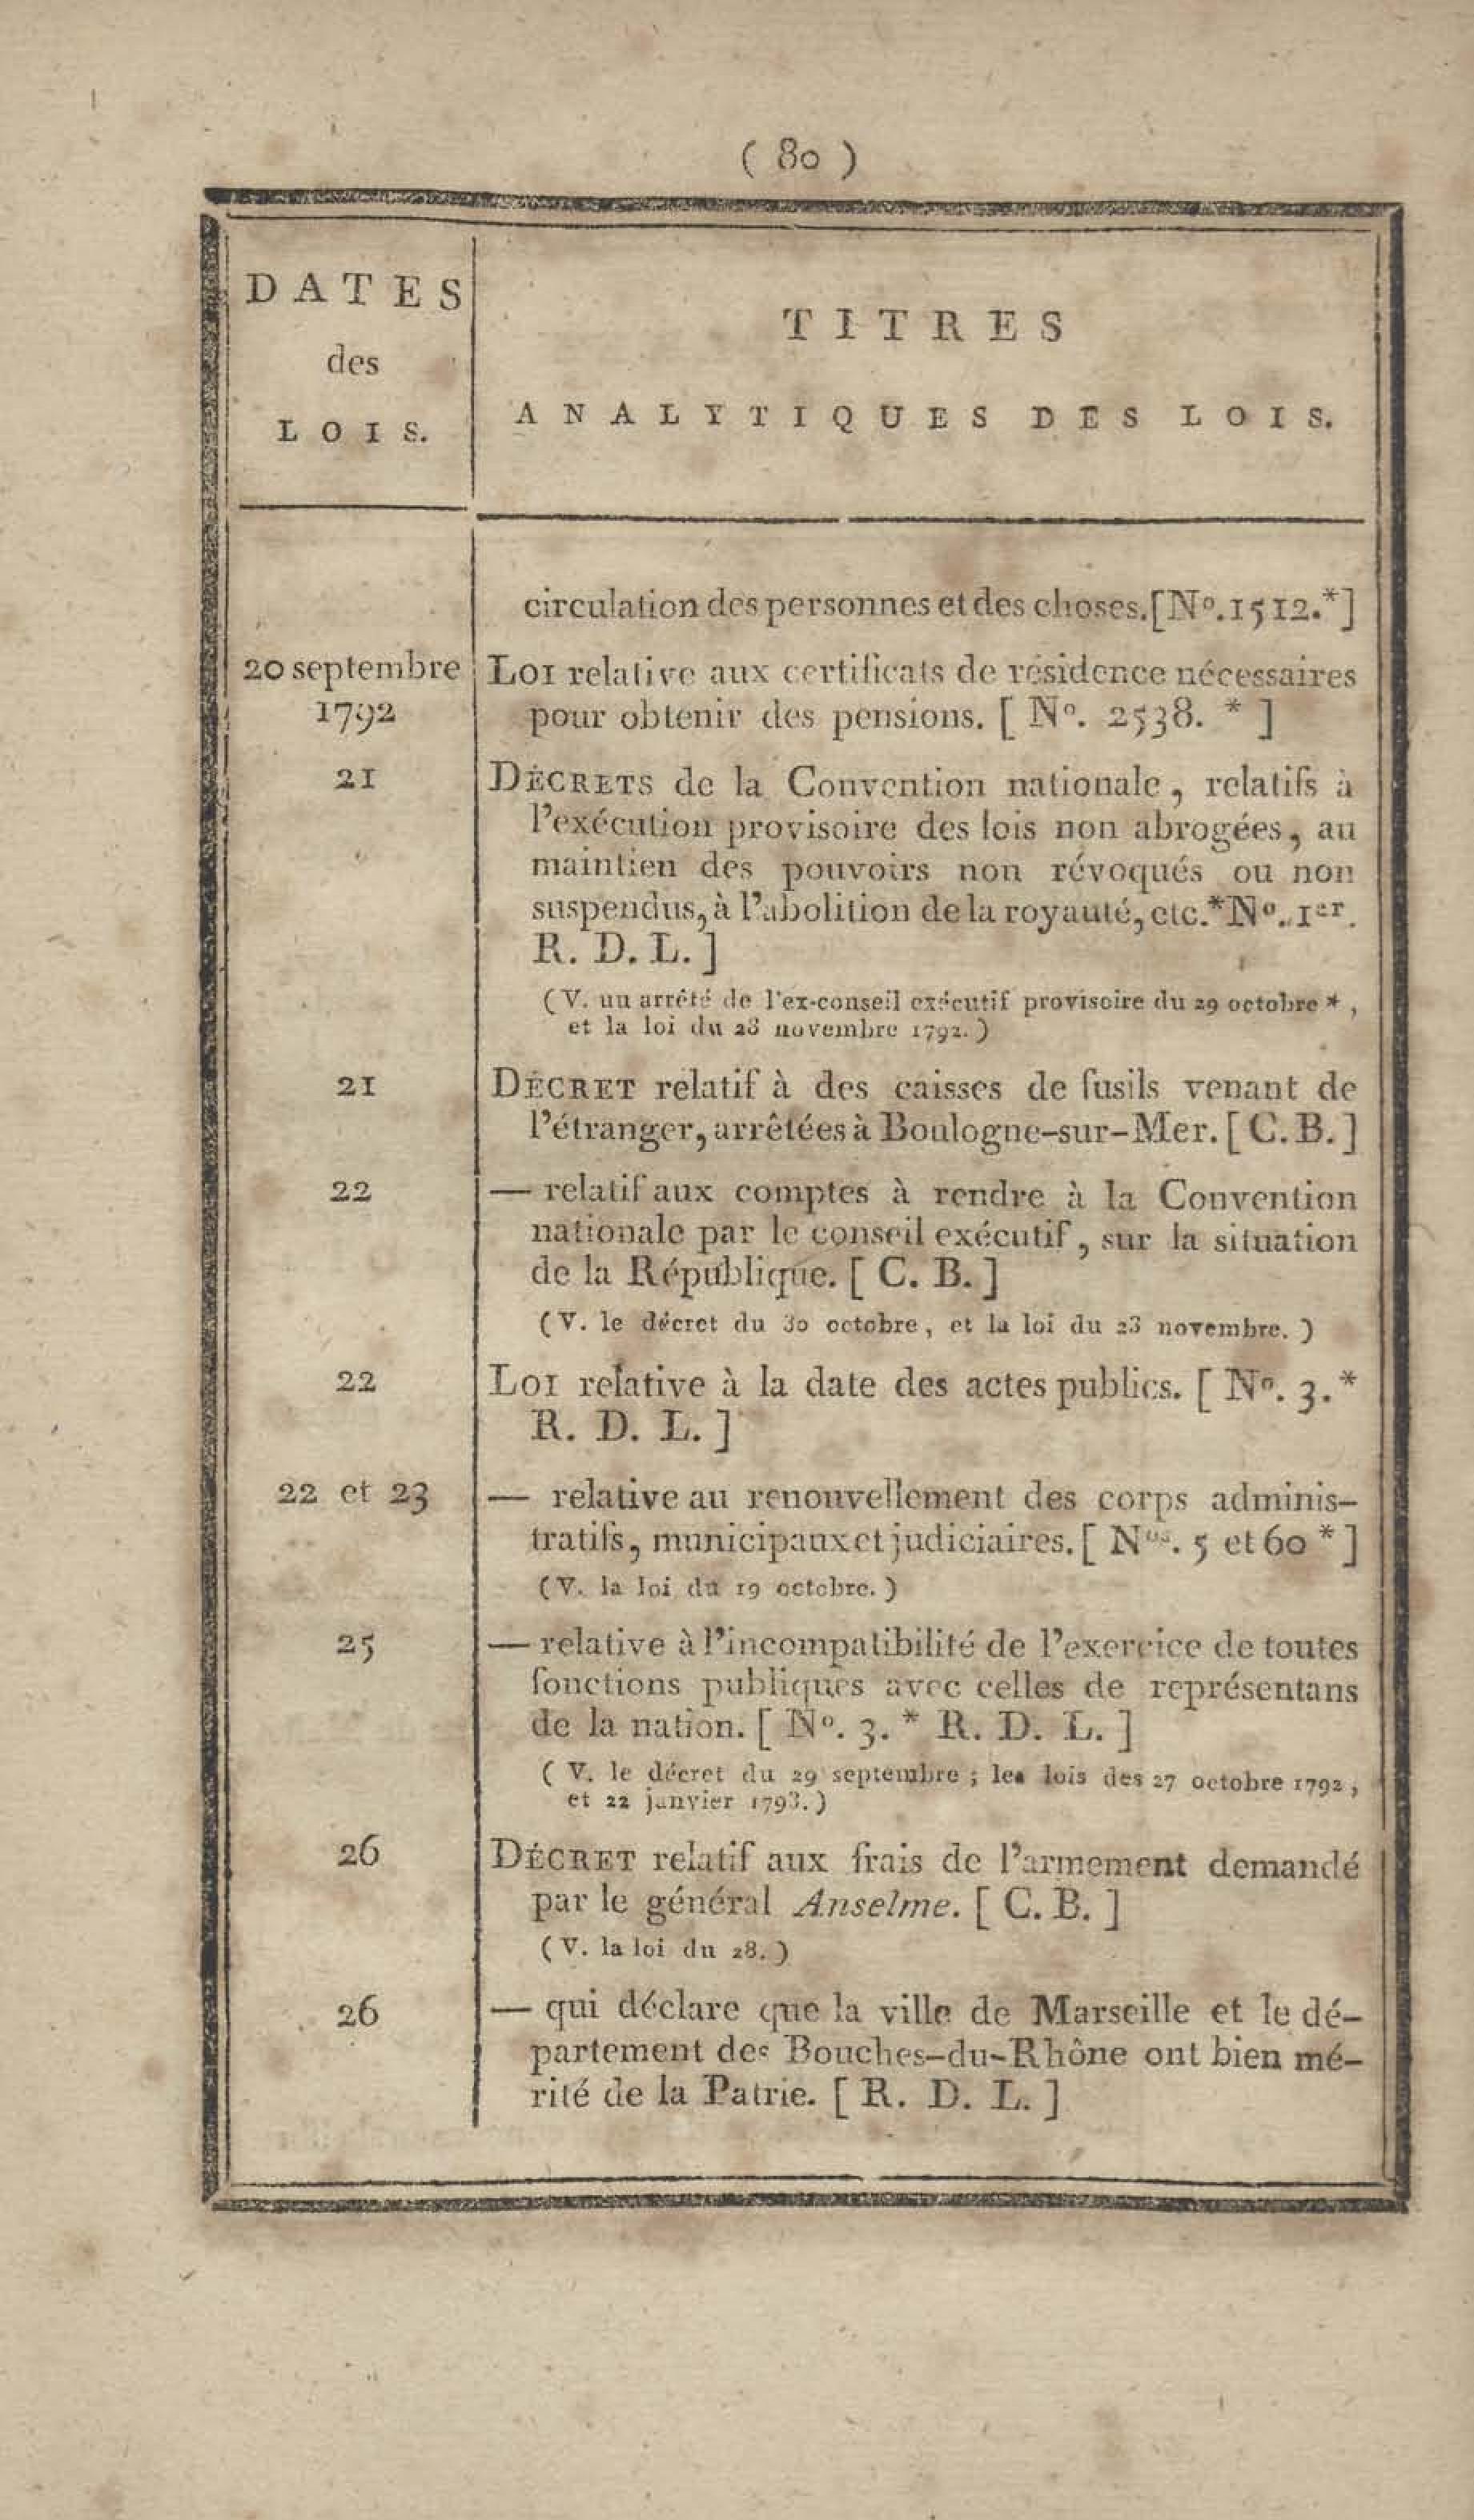 ( 80 )
DATES
des
LOIS.
TITRES
ANALYTIQUES DES LOIS.
circulation des personnes et des choses. [ Nº. 1512.* ]
20 septembre
1792
LOI relative aux certificats de résidence nécessaires
pour obtenir des pensions. [ Nº. 2538. * ]
21
DÉCRETS de la Convention nationale, relatifs à
l'exécution provisoire des lois non abrogées, au
maintien des pouvoirs non révoqués ou non
suspendus, à l'abolition de la royauté, etc.* Nº. 1er.
R. D. L. ]
(V. un arrêté de l'ex-conseil exécutif provisoire du 29 octobre *,
et la loi du 28 novembre 1792.)
21
DÉCRET relatif à des caisses de fusils venant de
l'étranger, arrêtées à Boulogne-sur-Mer. [ C. B. ]
22
— relatif aux comptes à rendre à la Convention
nationale par le conseil exécutif, sur la situation
de la République. [ C. B. ]
(V. le décret du 30 octobre, et la loi du 23 novembre.)
22
LOI relative à la date des actes publics. [ Nº. 3.*
R. D. L. ]
22 et 23
— relative au renouvellement des corps adminis-
tratifs, municipaux et judiciaires. [ Nos. 5 et 60 * ]
(V. la loi du 19 octobre.)
25
— relative à l'incompatibilité de l'exercice de toutes
fonctions publiques avec celles de représentans
de la nation. [ Nº. 3. * R. D. L. ]
( V. le décret du 29 septembre ; les lois des 27 octobre 1792,
et 22 janvier 1793.)
26
DÉCRET relatif aux frais de l'armement demandé
par le général Anselme. [ C. B. ]
(V. la loi du 28.)
26
— qui déclare que la ville de Marseille et le dé-
partement des Bouches-du-Rhône ont bien mé-
rité de la Patrie. [ R. D. L. ]